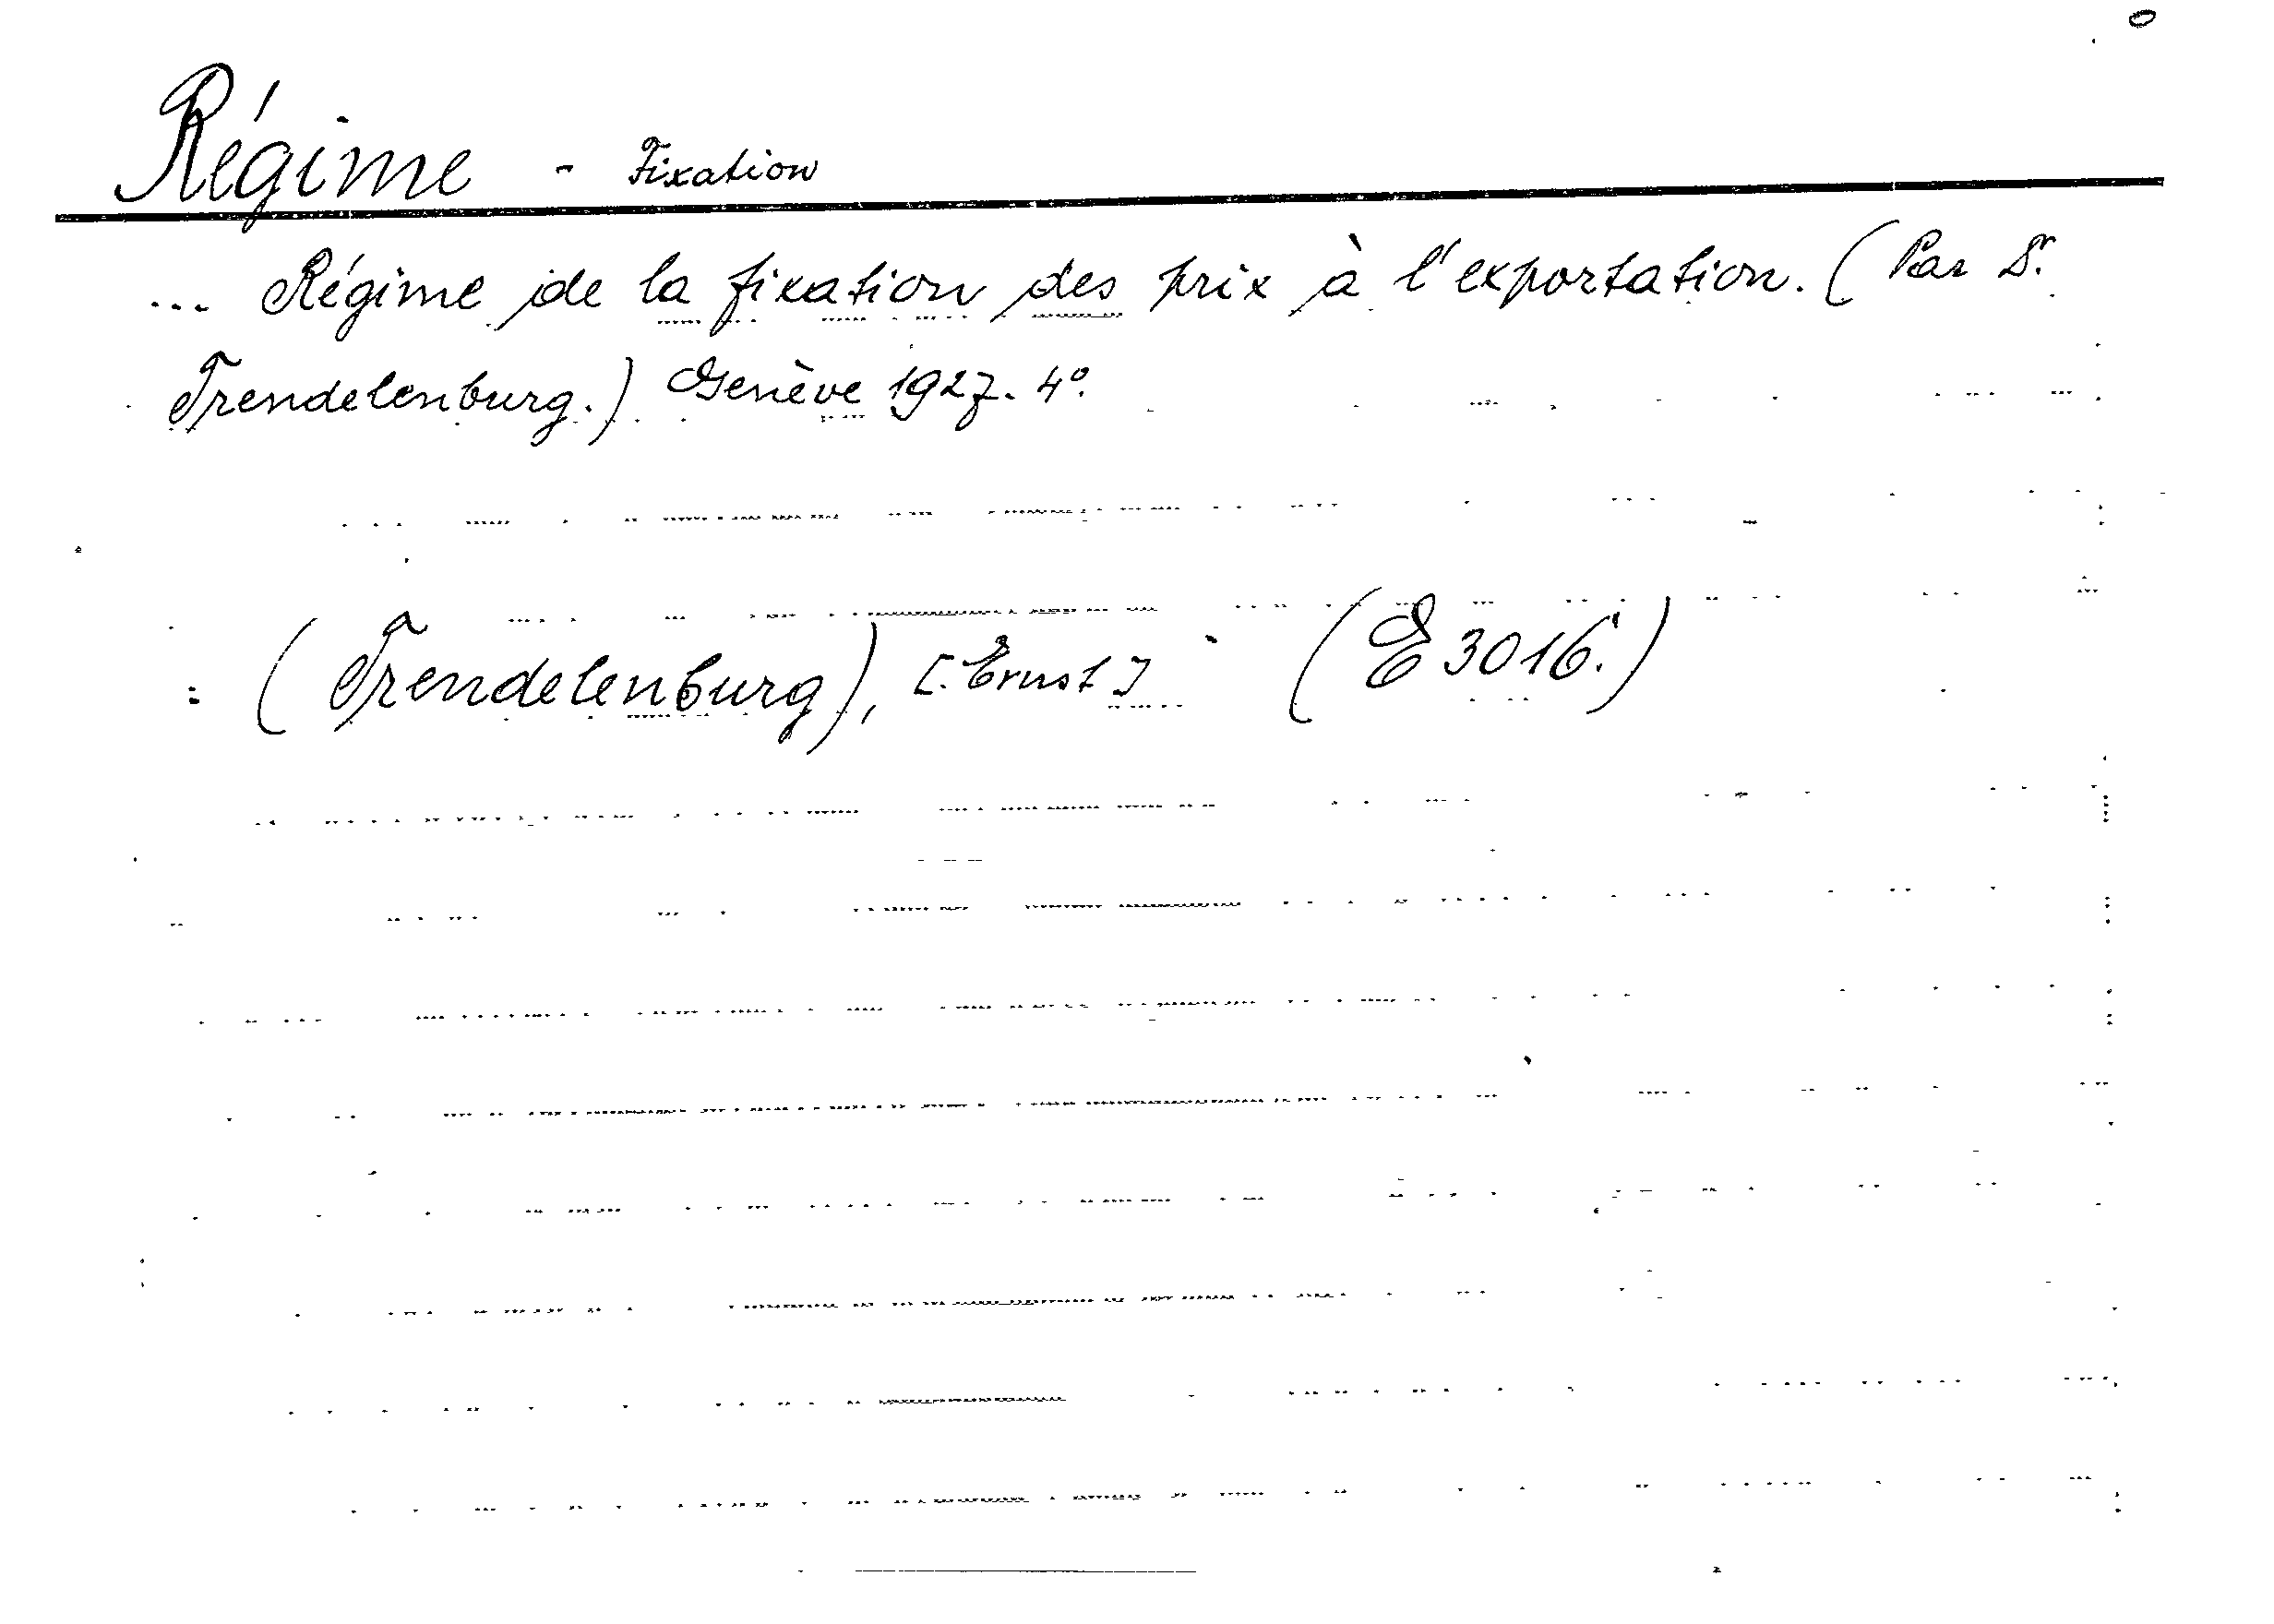 Régime - Fixation
... Régime de la fixation des prix à l'exportation. (Par Dr.
Trendelenburg.) Genève 1927. 4°.
: (Trendelenburg), [Ernst] (E 3016.)